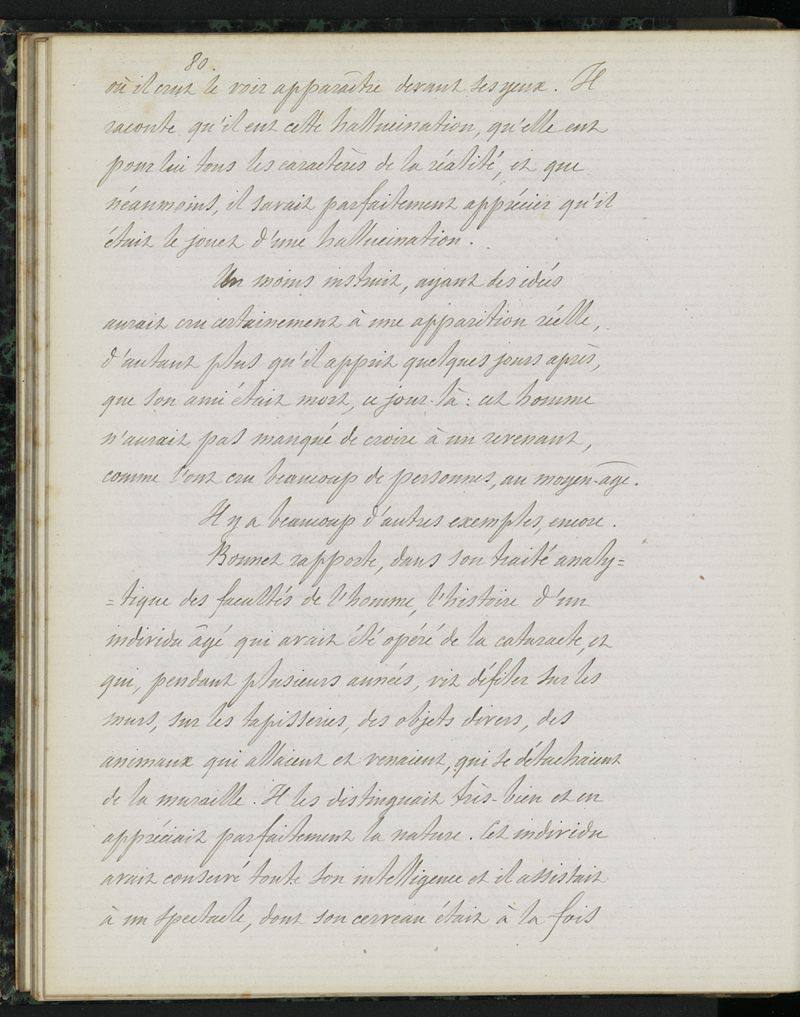 80.
où il crut le voir apparaître devant ses yeux. Il
raconte qu'il eut cette hallucination, qu'elle eut
pour lui tous les caractères de la réalité, et que
néanmoins, il savait parfaitement apprécier qu'il
était le jouet d'une hallucination.
Un moins instruit, ayant des idées
aurait cru certainement à une apparition réelle,
d'autant plus qu'il apprit quelques jours après,
que son ami était mort, ce jour-là : cet homme
n'aurait pas manqué de croire à un revenant,
comme l'ont cru beaucoup de personnes, au moyen-âge.
Il y a beaucoup d'autres exemples, encore.
Bonnet rapporte, dans son traité analy=
=tique des facultés de l'homme, l'histoire d'un
individu âgé qui avait été opéré de la cataracte, et
qui, pendant plusieurs années, vit défiler sur les
murs, sur les tapisseries, des objets divers, des
animaux qui allaient et venaient, qui se détachaient
de la muraille. Il les distinguait très-bien et en
appréciait parfaitement la nature. Cet individu
avait conservé toute son intelligence et il assistait
à un spectacle, dont son cerveau était à la fois